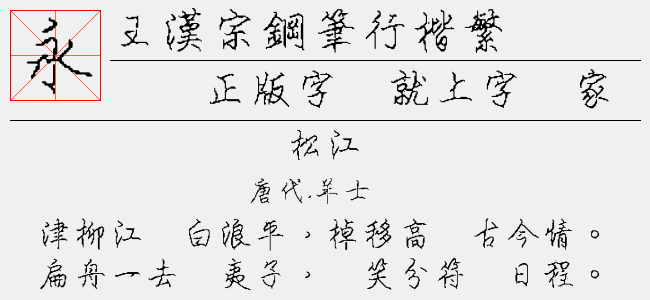 永
王漢宗鋼筆行楷繁
正版字 就上字 家
松江
唐代.羊士
津柳江 白浪平，棹移高 古今情。
扁舟一去 夷子， 笑分符 日程。